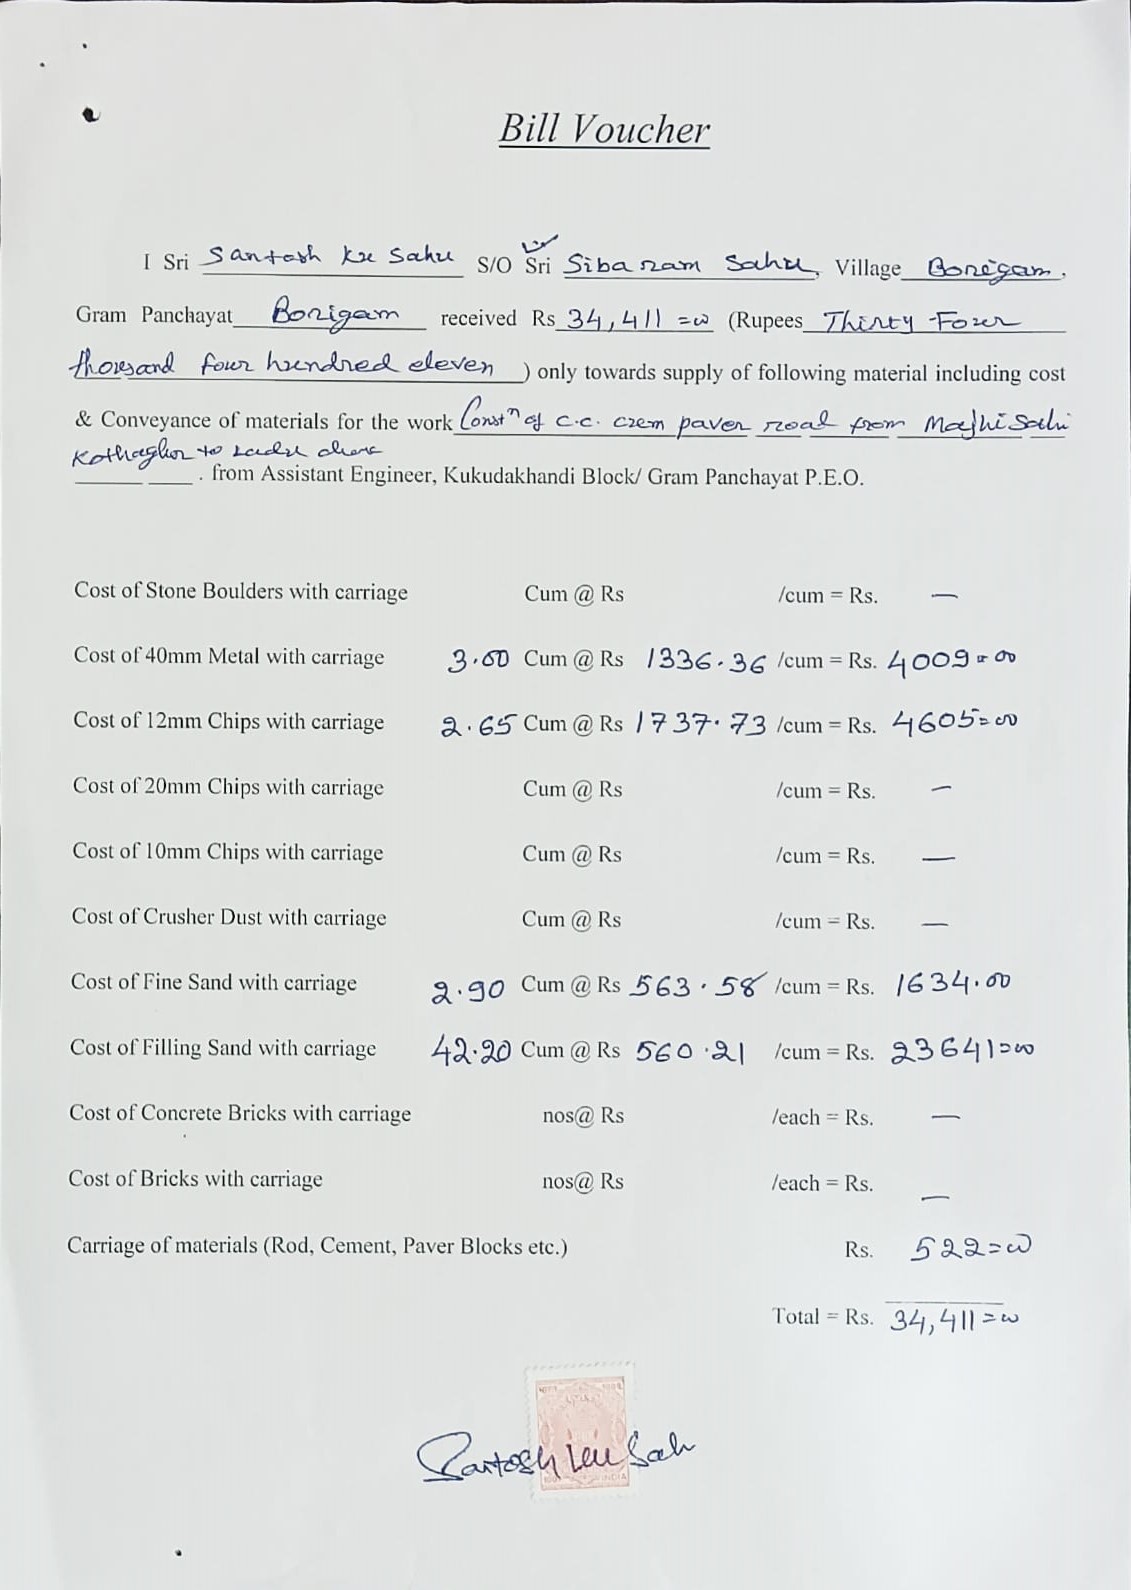 Bill Voucher
I Sri Santosh Ku Sahu S/O Sri Sibaram Sahu, Village Borigam,
Gram Panchayat Borigam received Rs 34,411 =00 (Rupees Thirty Four
thousand four hundred eleven ) only towards supply of following material including cost
& Conveyance of materials for the work Constn of c.c. cum paver road from Majhi Sahi
Kothaghor to
. from Assistant Engineer, Kukudakhandi Block/ Gram Panchayat P.E.O.
Cost of Stone Boulders with carriage Cum @ Rs /cum = Rs. —
Cost of 40mm Metal with carriage 3.00 Cum @ Rs 1336.36 /cum = Rs. 4009=00
Cost of 12mm Chips with carriage 2.65 Cum @ Rs 1737.73 /cum = Rs. 4605=00
Cost of 20mm Chips with carriage Cum @ Rs /cum = Rs. —
Cost of 10mm Chips with carriage Cum @ Rs /cum = Rs. —
Cost of Crusher Dust with carriage Cum @ Rs /cum = Rs. —
Cost of Fine Sand with carriage 2.90 Cum @ Rs 563.58 /cum = Rs. 1634.00
Cost of Filling Sand with carriage 42.20 Cum @ Rs 560.21 /cum = Rs. 23641=00
Cost of Concrete Bricks with carriage nos@ Rs /each = Rs. —
Cost of Bricks with carriage nos@ Rs /each = Rs. —
Carriage of materials (Rod, Cement, Paver Blocks etc.) Rs. 522=00
Total = Rs. 34,411=00
Santosh Ku Sah
INDIA